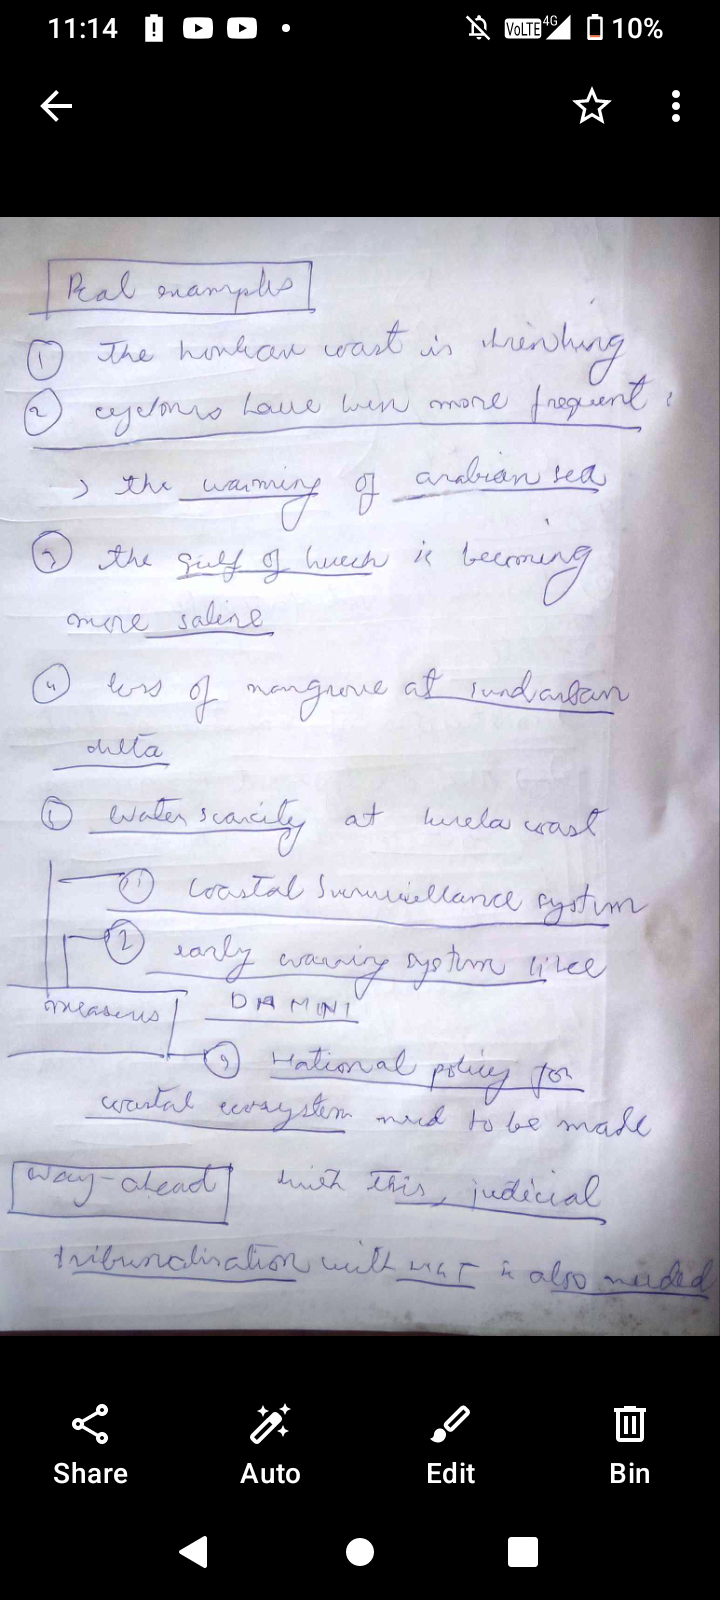 11:14
VoLTE 4G 10%
Real examples
① The konkan coast is shrinking
② cyclones have been more frequent
the warming of arabian sea
③ the gulf of kucch is becoming
more saline
④ loss of mangrove at sundarban
delta
⑤ water scarcity at kerela coast
① coastal survveillance system
② early warning system like
measures DAMINI
③ National policy for
coastal ecosystem need to be made
way-ahead with this, judicial
tribunalisation with NGT is also needed
Share Auto Edit Bin